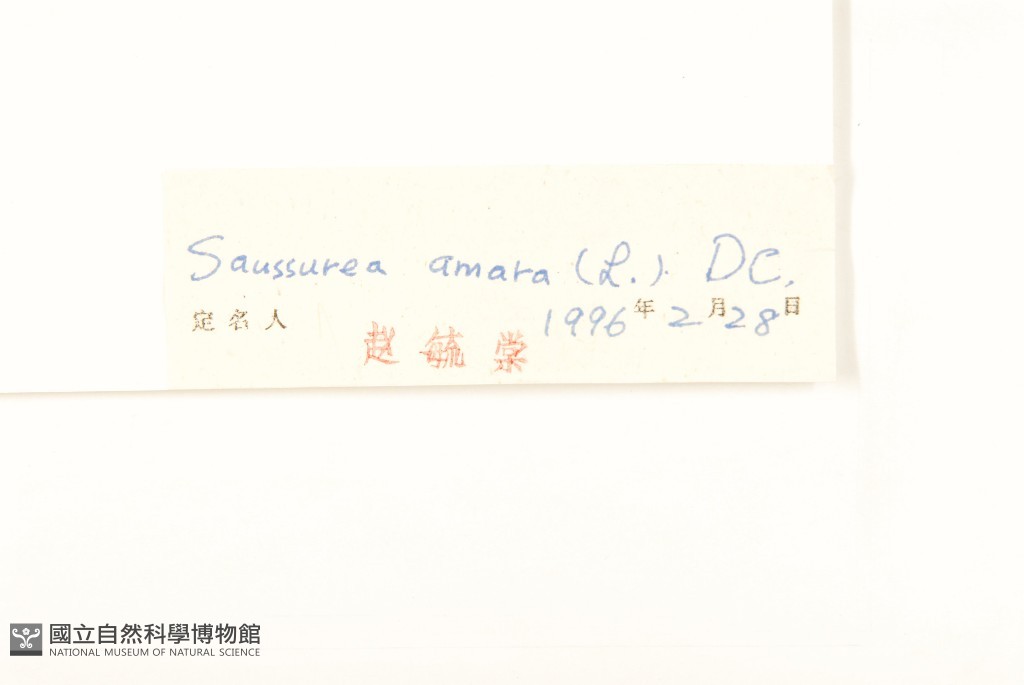 Saussurea amara (L.) DC.
定名人 赵毓棠 1996年2月28日
國立自然科學博物館
NATIONAL MUSEUM OF NATURAL SCIENCE